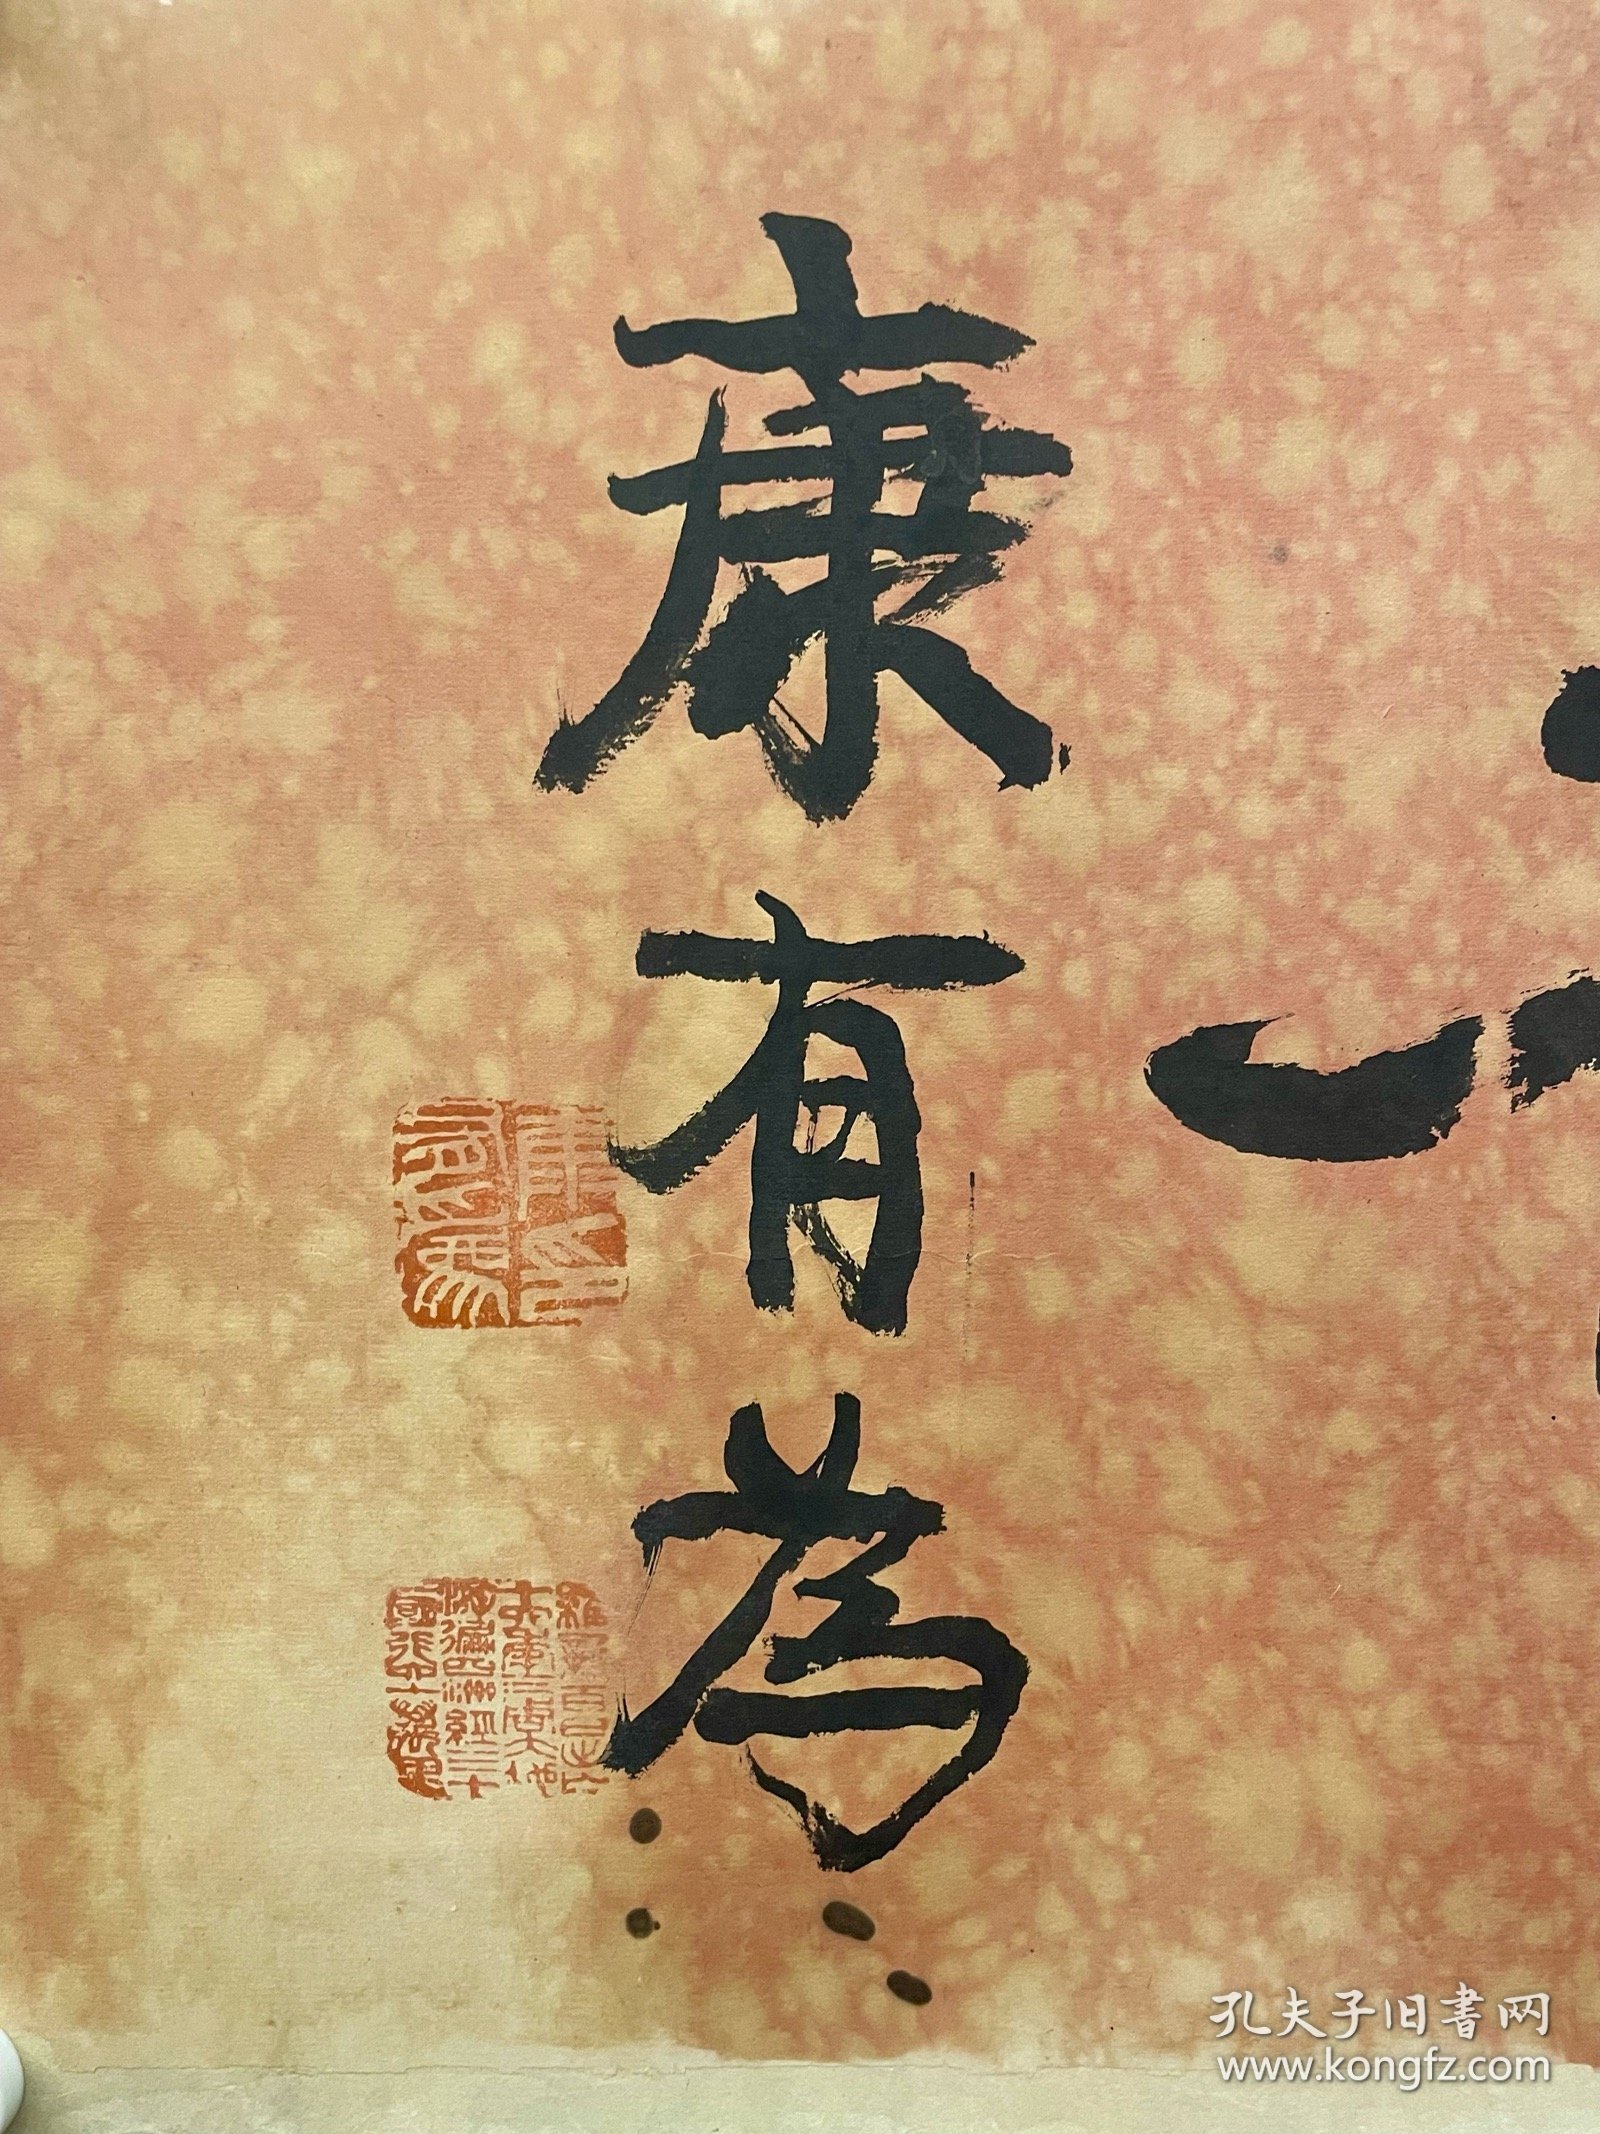 康有為
康有為印
維新百日出亡十六年三周大地
游遍四洲經三十一國行六十萬里
孔夫子旧書网
www.kongfz.com